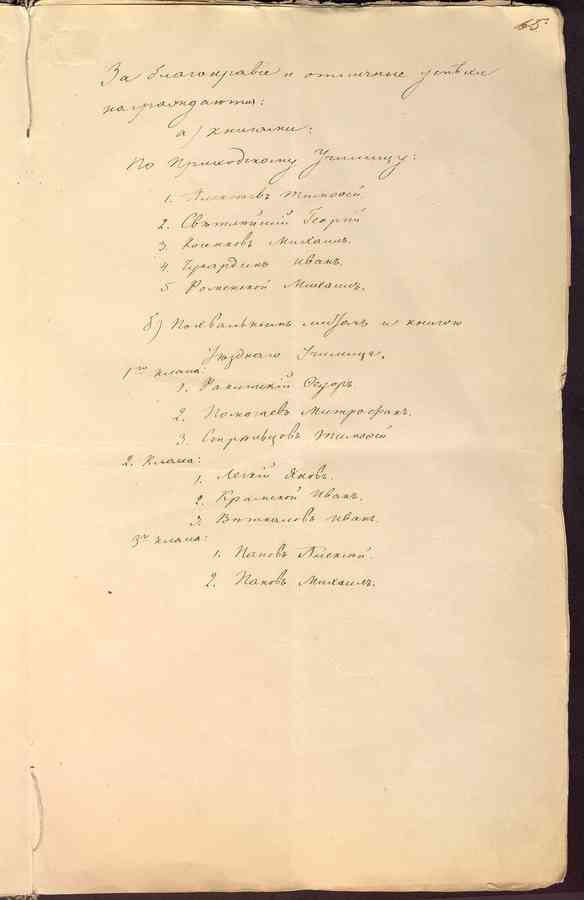 65.
За благонравіе и отличные успѣхи
награждаются:
а) книгами:
По Приходскому Училищу:
1. Алексѣевъ Тимофей
2. Свѣтличный Георгій
3. Михаилъ.
4. Иванъ.
5. Роменской Михаилъ.
б) Похвальнымъ листомъ и книгою
Уѣзднаго Училища.
1го класса:
1. Ракитскій Ѳедоръ
2. Помогаевъ Митрофанъ.
3. Тимофей
2. Класса:
1. Легкій Яковъ.
2. Крамской Иванъ.
3. Виткаловъ Иванъ.
3го класса:
1. Пановъ Алексѣй.
2. Пановъ Михаилъ.